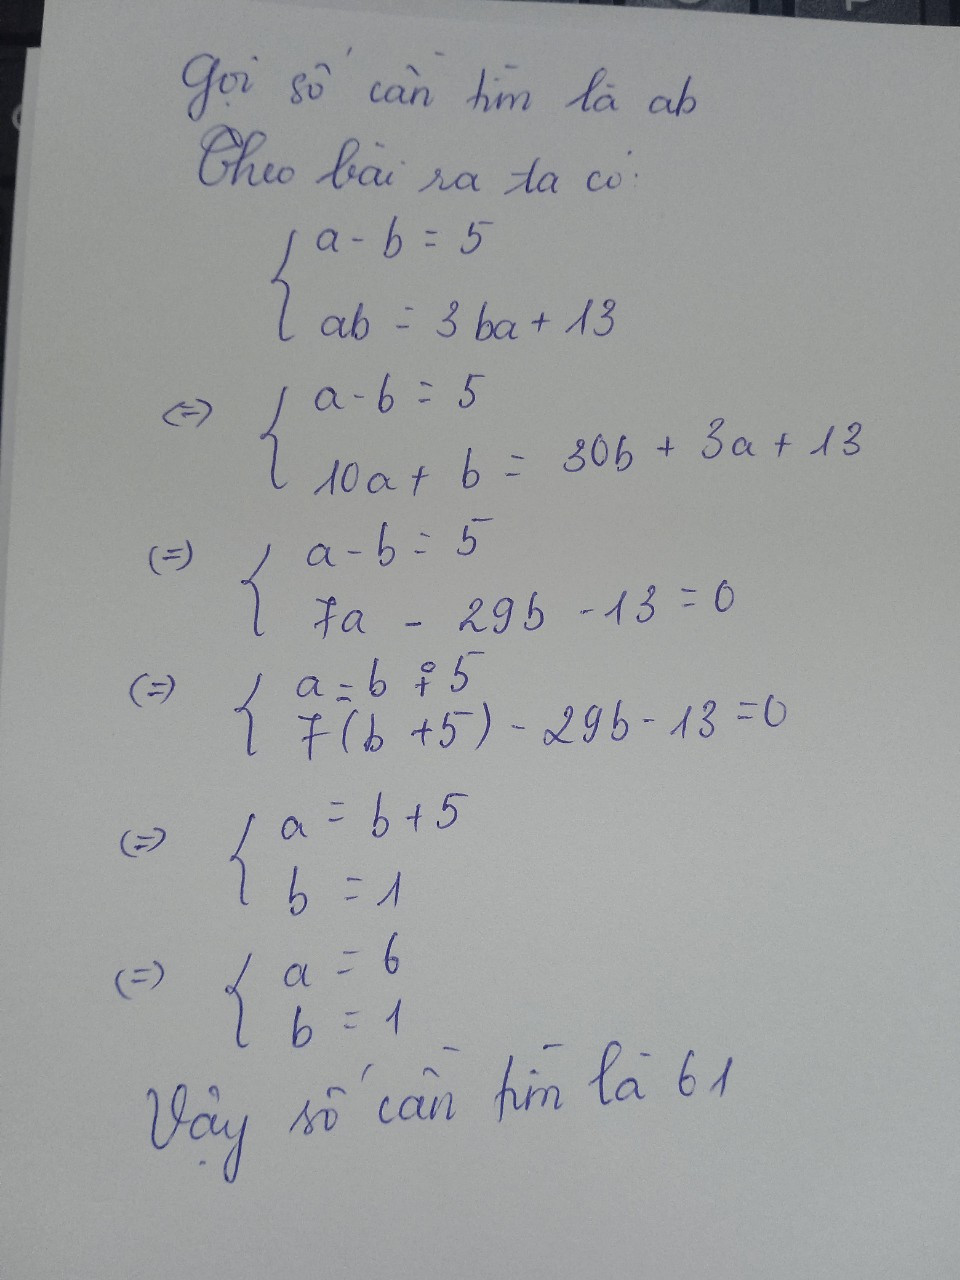 Gọi số cần tìm là ab
Theo bài ra ta có:
{ a - b = 5
ab = 3 ba + 13
(=) { a - b = 5
10a + b = 30b + 3a + 13
(=) { a - b = 5
7a - 29b - 13 = 0
(=) { a = b + 5
7(b + 5) - 29b - 13 = 0
(=) { a = b + 5
b = 1
(=) { a = 6
b = 1
Vậy số cần tìm là 61